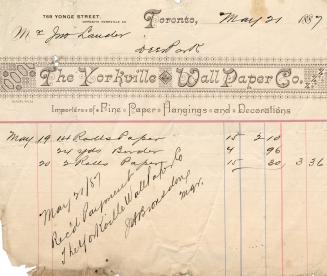 768 YONGE STREET,
OPPOSITE YORKVILLE AV.
Toronto, May 21 1887
Mr Jno Lauder
Deer Park
The Yorkville Wall Paper Co.
Importers of Fine Paper Hangings and Decorations
May 19 14 Rolls Paper 15 2 10
24 yds Border 4 96
20 2 Rolls Paper 15 30 3 36
May 21/87
Rec'd Payment
The Yorkville Wall Pap Co
Mgr.